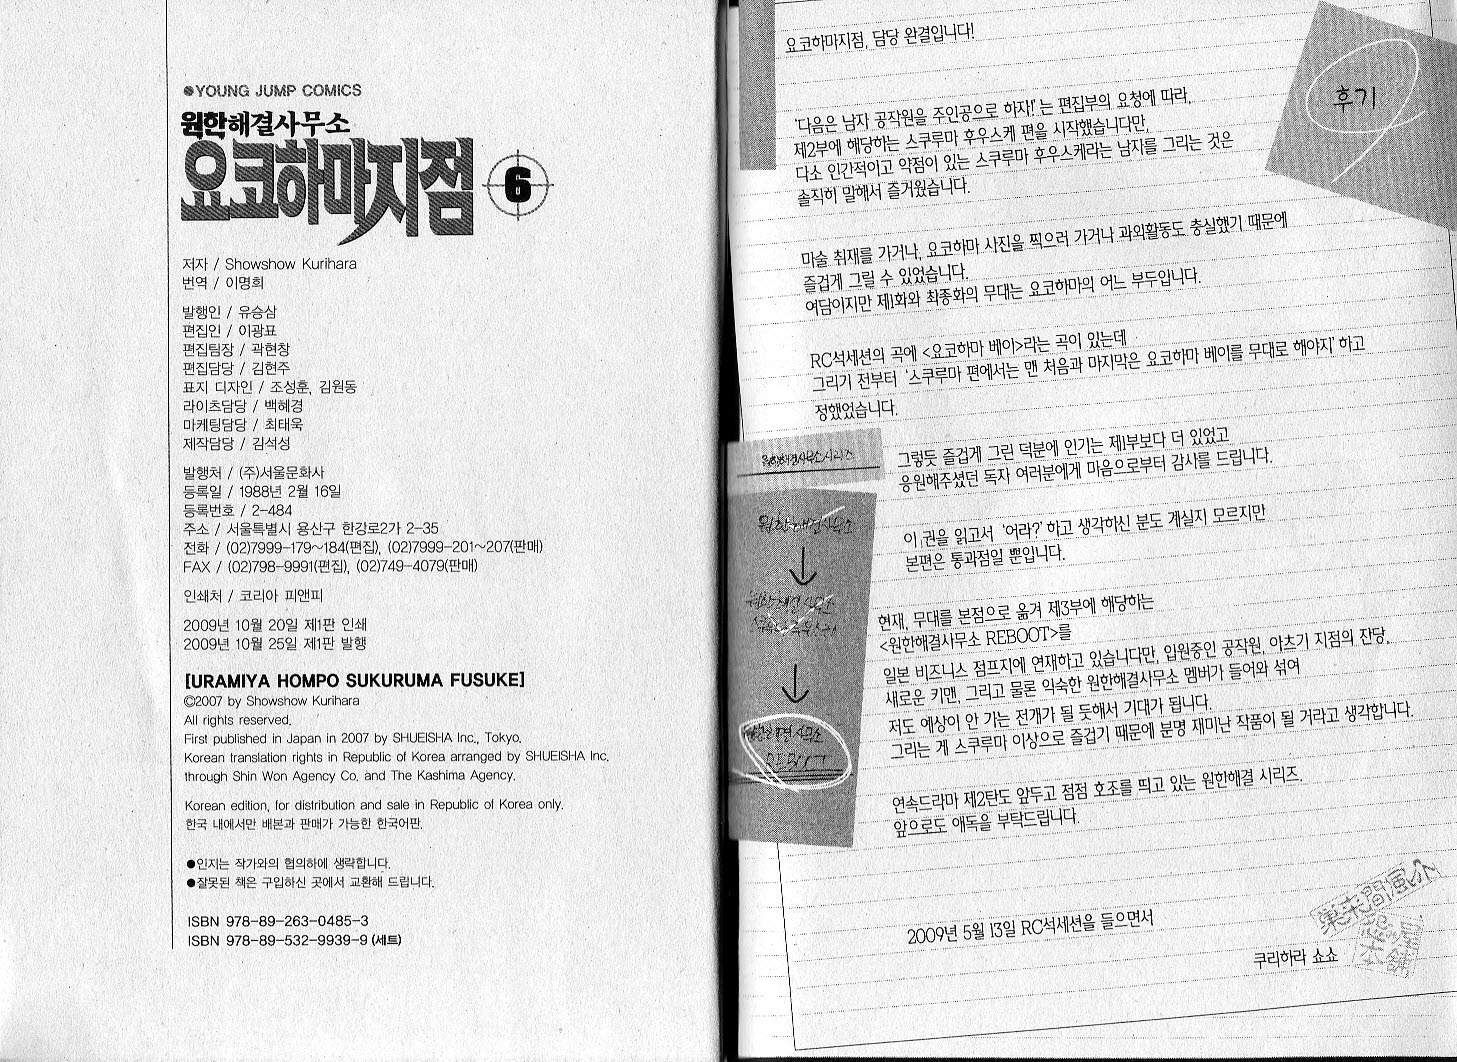 ●YOUNG JUMP COMICS
원한해결사무소
요코하마지점 6
저자 / Showshow Kurihara
번역 / 이명희
발행인 / 유승삼
편집인 / 이광표
편집팀장 / 곽현창
편집담당 / 김현주
표지 디자인 / 조성훈, 김원동
라이츠담당 / 백혜경
마케팅담당 / 최태욱
제작담당 / 김석성
발행처 / (주)서울문화사
등록일 / 1988년 2월 16일
등록번호 / 2-484
주소 / 서울특별시 용산구 한강로2가 2-35
전화 / (02)7999-179~184(편집), (02)7999-201~207(판매)
FAX / (02)798-9991(편집), (02)749-4079(판매)
인쇄처 / 코리아 피앤피
2009년 10월 20일 제1판 인쇄
2009년 10월 25일 제1판 발행
[URAMIYA HOMPO SUKURUMA FUSUKE]
©2007 by Showshow Kurihara
All rights reserved.
First published in Japan in 2007 by SHUEISHA Inc., Tokyo.
Korean translation rights in Republic of Korea arranged by SHUEISHA Inc.
through Shin Won Agency Co. and The Kashima Agency.
Korean edition, for distribution and sale in Republic of Korea only.
한국 내에서만 배본과 판매가 가능한 한국어판.
●인지는 작가와의 협의하에 생략합니다.
●잘못된 책은 구입하신 곳에서 교환해 드립니다.
ISBN 978-89-263-0485-3
ISBN 978-89-532-9939-9 (세트)
후기
요코하마지점, 담당 완결입니다!
'다음은 남자 공작원을 주인공으로 하자!'는 편집부의 요청에 따라,
제2부에 해당하는 스쿠루마 후우스케 편을 시작했습니다만,
다소 인간적이고 약점이 있는 스쿠루마 후우스케라는 남자를 그리는 것은
솔직히 말해서 즐거웠습니다.
마술 취재를 가거나, 요코하마 사진을 찍으러 가거나 과외활동도 충실했기 때문에
즐겁게 그릴 수 있었습니다.
여담이지만 제1화와 최종화의 무대는 요코하마의 어느 부두입니다.
RC석세션의 곡에 <요코하마 베이>라는 곡이 있는데
그리기 전부터 '스쿠루마 편에서는 맨 처음과 마지막은 요코하마 베이를 무대로 해야지' 하고
정했었습니다.
그렇듯 즐겁게 그린 덕분에 인기는 제1부보다 더 있었고
응원해주셨던 독자 여러분에게 마음으로부터 감사를 드립니다.
이 권을 읽고서 '어라?' 하고 생각하신 분도 계실지 모르지만
본편은 통과점일 뿐입니다.
현재, 무대를 본점으로 옮겨 제3부에 해당하는
<원한해결사무소 REBOOT>를
일본 비즈니스 점프지에 연재하고 있습니다만, 입원중인 공작원, 아츠기 지점의 잔당,
새로운 키맨, 그리고 물론 익숙한 원한해결사무소 멤버가 들어와 섞여
저도 예상이 안 가는 전개가 될 듯해서 기대가 됩니다.
그리는 게 스쿠루마 이상으로 즐겁기 때문에 분명 재미난 작품이 될 거라고 생각합니다.
연속드라마 제2탄도 앞두고 점점 호조를 띄고 있는 원한해결 시리즈.
앞으로도 애독을 부탁드립니다.
2009년 5월 13일 RC석세션을 들으면서
쿠리하라 쇼쇼
원한해결사무소시리즈
원한해결사무소
원한해결사무소